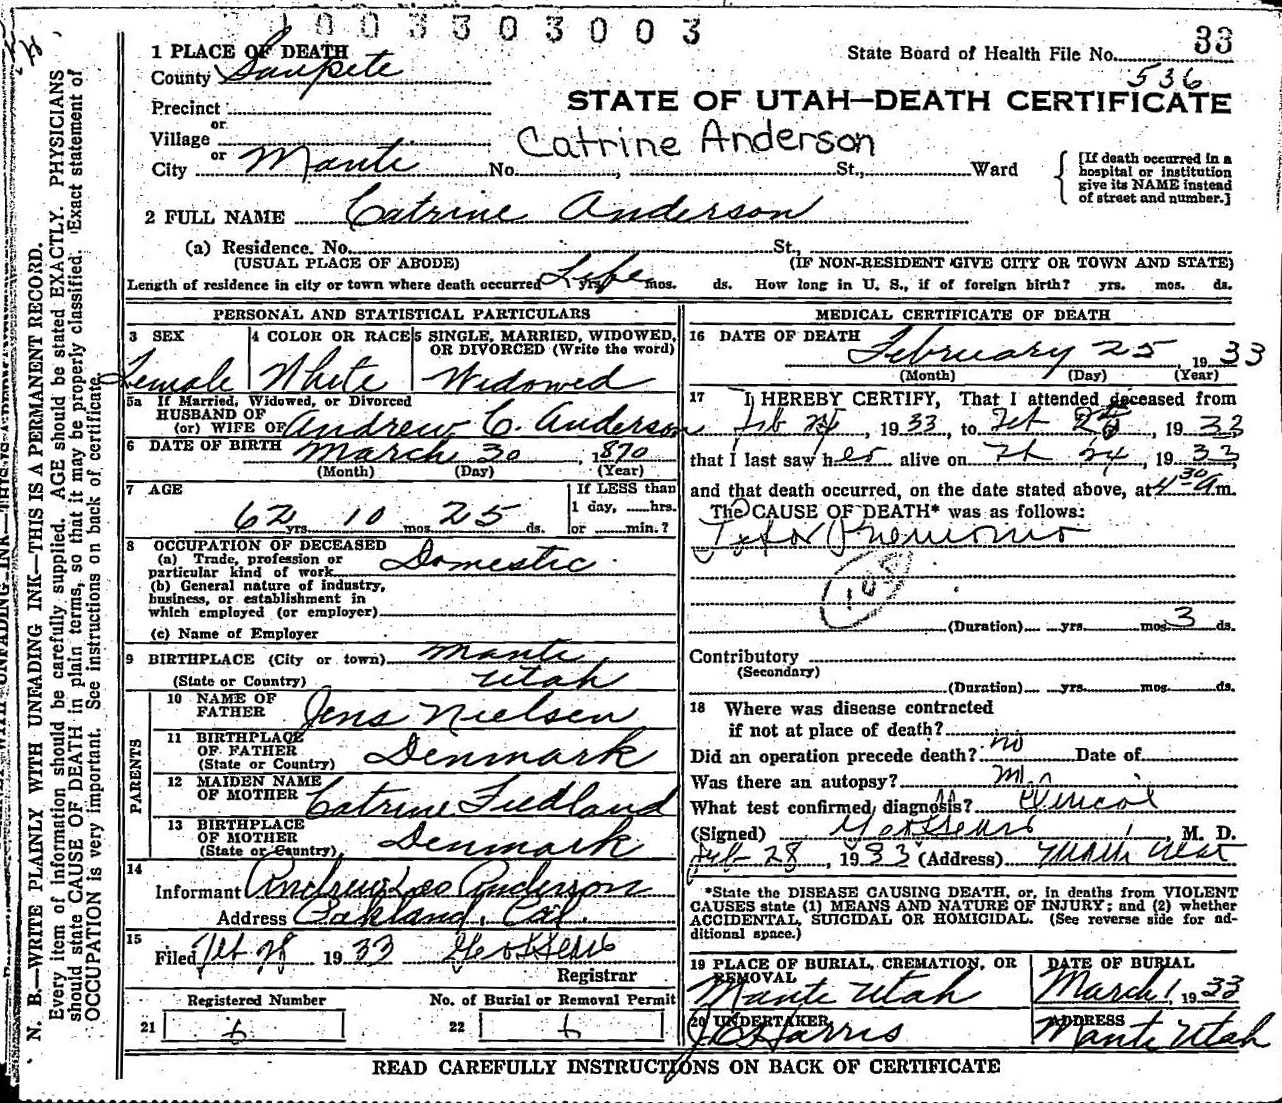 1003303003
33
1 PLACE OF DEATH
State Board of Health File No.
County Sanpete
536
Precinct
STATE OF UTAH—DEATH CERTIFICATE
or
Village
Catrine Anderson
or
City Manti No. , St., Ward
[If death occurred in a
hospital or institution
give its NAME instead
of street and number.]
2 FULL NAME Catrine Anderson
(a) Residence. No. St.,
(USUAL PLACE OF ABODE) (IF NON-RESIDENT GIVE CITY OR TOWN AND STATE)
Length of residence in city or town where death occurred Life yrs. mos. ds. How long in U. S., if of foreign birth? yrs. mos. ds.
PERSONAL AND STATISTICAL PARTICULARS
3 SEX
Female
4 COLOR OR RACE
White
5 SINGLE, MARRIED, WIDOWED,
OR DIVORCED (Write the word)
Widowed
5a If Married, Widowed, or Divorced
HUSBAND OF
(or) WIFE OF Andrew C. Anderson
6 DATE OF BIRTH March 30, 1870
(Month) (Day) (Year)
7 AGE
62 yrs. 10 mos. 25 ds.
If LESS than
1 day, hrs.
or min.?
8 OCCUPATION OF DECEASED
(a) Trade, profession or
particular kind of work Domestic
(b) General nature of industry,
business, or establishment in
which employed (or employer)
(c) Name of Employer
9 BIRTHPLACE (City or town) Manti
(State or Country) Utah
PARENTS
10 NAME OF
FATHER Jens Nielsen
11 BIRTHPLACE
OF FATHER
(State or Country) Denmark
12 MAIDEN NAME
OF MOTHER Catrine Fredland
13 BIRTHPLACE
OF MOTHER
(State or Country) Denmark
14
Informant Andrew Leo Anderson
Address Oakland, Cal.
15
Filed Feb 28 1933
Registrar
Registered Number
21 6
No. of Burial or Removal Permit
22 6
MEDICAL CERTIFICATE OF DEATH
16 DATE OF DEATH
February 25, 1933
(Month) (Day) (Year)
17 I HEREBY CERTIFY, That I attended deceased from
Feb 24, 1933, to Feb , 1933
that I last saw her alive on Feb 24, 1933,
and that death occurred, on the date stated above, at 4 30 a m.
The CAUSE OF DEATH* was as follows:
108
(Duration) yrs. mos. 3 ds.
Contributory
(Secondary)
(Duration) yrs. mos. ds.
18 Where was disease contracted
if not at place of death?
Did an operation precede death? no Date of
Was there an autopsy?
What test confirmed diagnosis? Clinical
(Signed) M. D.
Feb 28, 1933 (Address) Manti Utah
*State the DISEASE CAUSING DEATH, or, in deaths from VIOLENT
CAUSES state (1) MEANS AND NATURE OF INJURY; and (2) whether
ACCIDENTAL, SUICIDAL OR HOMICIDAL. (See reverse side for ad-
ditional space.)
19 PLACE OF BURIAL, CREMATION, OR
REMOVAL
Manti Utah
DATE OF BURIAL
March 1, 1933
20 UNDERTAKER
Harris
ADDRESS
Manti Utah
READ CAREFULLY INSTRUCTIONS ON BACK OF CERTIFICATE
N. B.—WRITE PLAINLY WITH UNFADING INK—THIS IS A PERMANENT RECORD.
Every item of information should be carefully supplied. AGE should be stated EXACTLY. PHYSICIANS
should state CAUSE OF DEATH in plain terms, so that it may be properly classified. Exact statement of
OCCUPATION is very important. See instructions on back of certificate.